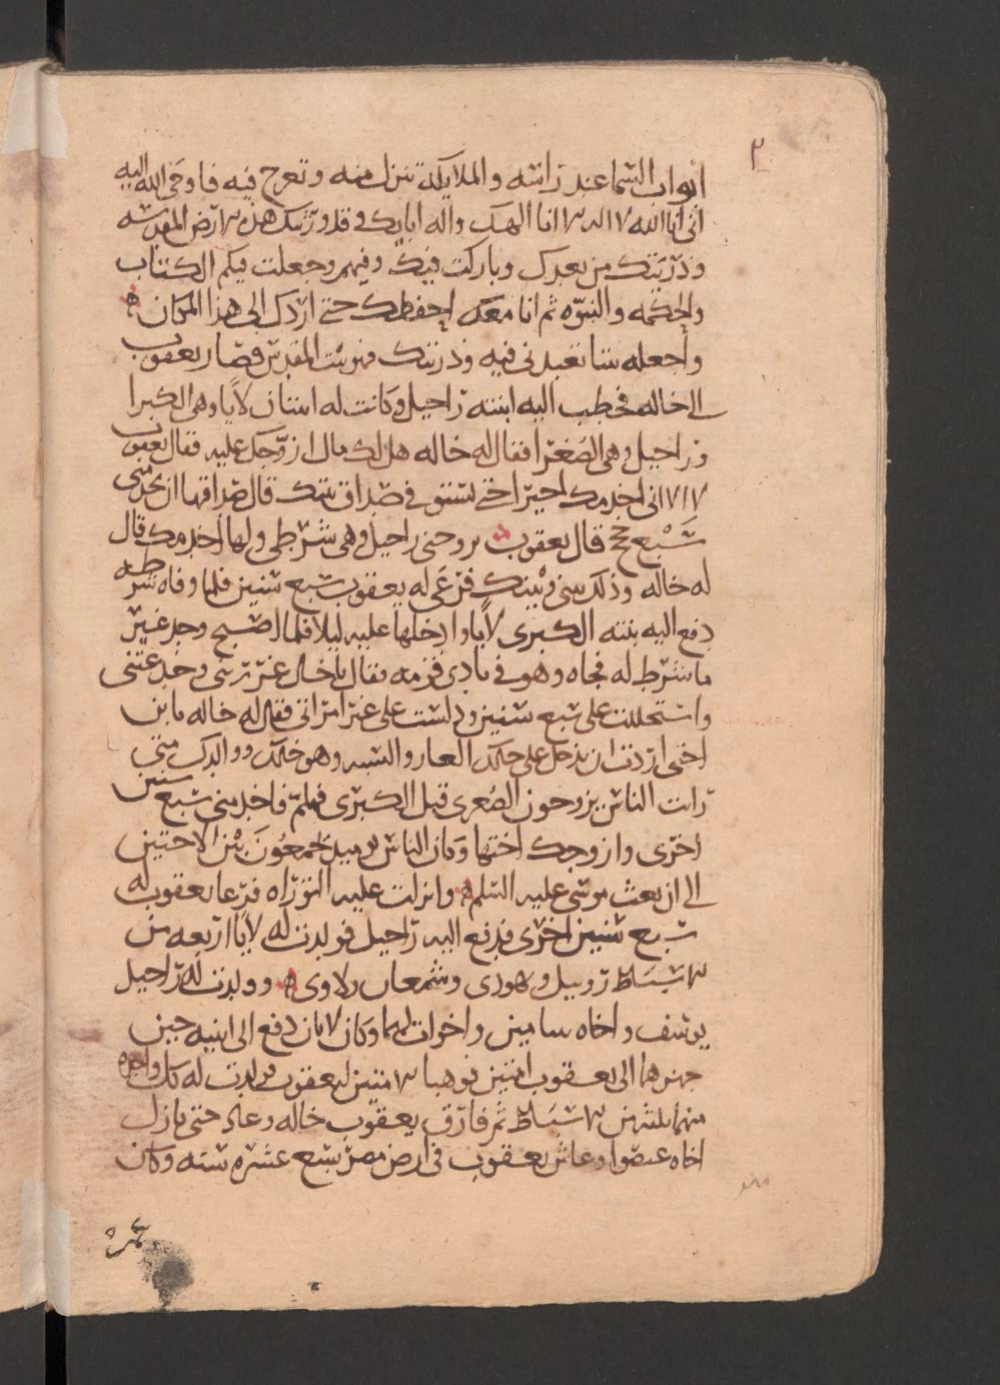 ٢
ابواب السما عند راسه والملايكة تنزل منه وتعرج فيه فاوحى الله اليه
انى انا الله لا اله الا انا الهك واله ابايك وقد ورثتك هذه الارض المقدسه
وذريتك من بعدك وباركت فيك وفيهم وجعلت فيكم الكتاب
والحكمه والنبوه ثم انا معك احفظك حتى اردك الى هذا المكان
واجعله بيتا تعبدنى فيه وذريتك فهو بيت المقدس فصار يعقوب
الى خاله فخطب اليه ابنته راحيل وكانت له ابنتان لايا وهى الكبرا
وراحيل وهى الصغرا فقال له خاله هل لك مال ازوجك عليه فقال يعقوب
لا الا انى اخدمك اجيرا حتى تستوفى صداق بنتك قال صداقها ان تخدمنى
سبع حجج قال يعقوب تزوجنى راحيل وهى شرطى ولها اخدمك قال
له خاله وذلك بينى وبينك فرعى له يعقوب سبع سنين فلما وفاه شرطه
دفع اليه بنته الكبرى لايا وادخلها عليه ليلا فلما اصبح وجد غير
ما شرط له فجاه وهو فى نادى قومه فقال يا خال غررتنى وخدعتنى
واستحللت على سبع سنين ودلست على غير امراتى فقال له خاله يا بن
اختى اردت ان تدخل على خالك العار والسبه وهو خالك ووالدك متى
رايت الناس يزوجون الصغرى قبل الكبرى فهلم فاخدمنى سبع سنين
اخرى وازوجك اختها وكان الناس يوميذ يجمعون بين الاختين
الى ان بعث موسى عليه السلم وانزلت عليه التوراه فرعا يعقوب له
سبع سنين اخرى فدفع اليه راحيل فولدت له لايا اربعه من
الاسباط روبيل ويهودى وشمعان ولاوى وولدت له راحيل
يوسف واخاه بنيامين واخوات لهما وكان لابان دفع الى ابنتيه حين
جهزهما الى يعقوب امتين فوهبا الامتين ليعقوب فولدت له كل واحده
منهما ثلثه من الاسباط ثم فارق يعقوب خاله وعاد حتى نازل
اخاه عيصوا وعاش يعقوب فى ارض مصر سبع عشره سنه وكان
عمره